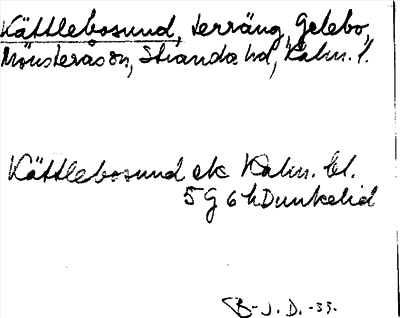 Kättlebosund, terräng, Gelebo,
Mönsterås sn, Stranda hd, Kalm. l.
Kättlebosund ek Kalm. bl.
5 G 6 h Dunkelid
B-J. D. -33.